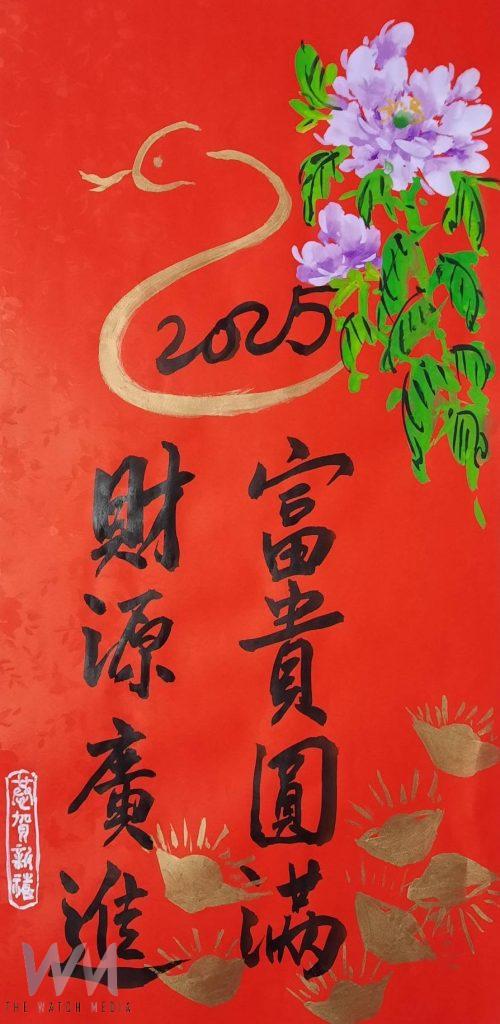 2025
富貴圓滿
財源廣進
恭賀新禧
WM
THE WATCH MEDIA